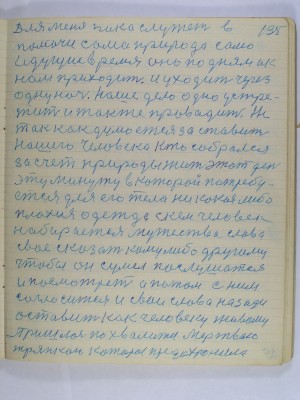 135
Для меня пока служет в
помочи сама природа само
идущие время оно подням ак
ном приходит и уходит через
одну ноч. Наше дело одно устре-
жит и так же проводит. Ж
так как думоется заставит
нашего человека кто собрался
за счет природы жит этот ден
эту минуту в которой потребу-
ется для его тела никокая либо
плохия одежда с кем человек
набирается мужества слова
свое сказат кому либо другому
чтобы он сумел послушатся
и посмотрет а потом с ним
согласится и свои слова назади
оставит как человеку живому
Пришлося похвалится Мертвою
тряпкою которая предохронила